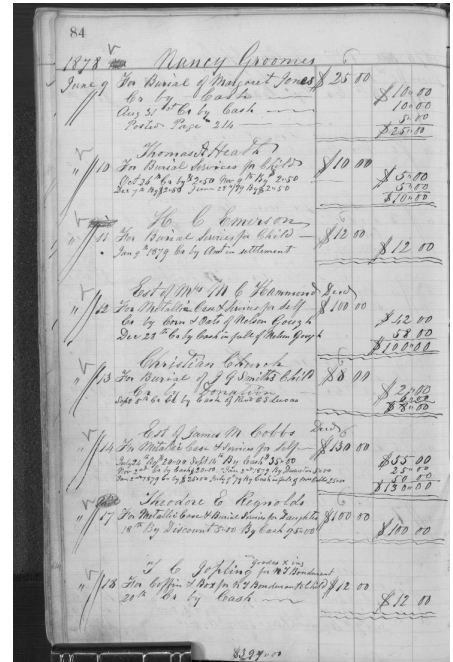 84
1878 Nancy Groomes
June 9 For Burial of Margaret Jones $25 00
Cr by Cash $10"00
Aug 31st Cr by Cash 10"00
Posted Page 214 5"00
$25"00
Thomas A Heath
" 10 For Burial Services for Child $10 00
Oct 26th Cr by $2"50 Nov 9th By $2"50 $5"00
Dec 7th By $2"50 June 28th/79 By $2"50 5"00
$10"00
H C Emerson
" 11 For Burial Services for Child $12 00
Jan 9th 1879 Cr by Amt in settlement $12 00
Est of Mrs M C Hammond Decd
" 12 For Metallic Case & Services for self $100 00
Cr by Corn & Oats of Nelson Gough $42 00
Dec 28th Cr by Cash in full of Nelson Gough 58 00
$100"00
Christian Church
" 13 For Burial of J G Smiths Child $8 00
Cr by Donation $2"00
Sept 9th Cr by Cash of Lucas
$8"00
Est of James M Cobbs Decd
" 14 For Metallic Case & Services for self $130 00
July 26 20"00 Sept 14th By Cash 35"00 $55"00
25"00
50 00
$130"00
Theodore E Reynolds
" 17 For Metallic Case & Burial Services for Daughter $100 00
18th By Discount 5"00 By Cash 95"00 $100 00
T C Jopling Goods x ins for
" 18 For Coffin & Box for Child $12 00
20th Cr by Cash $12 00
$397"00